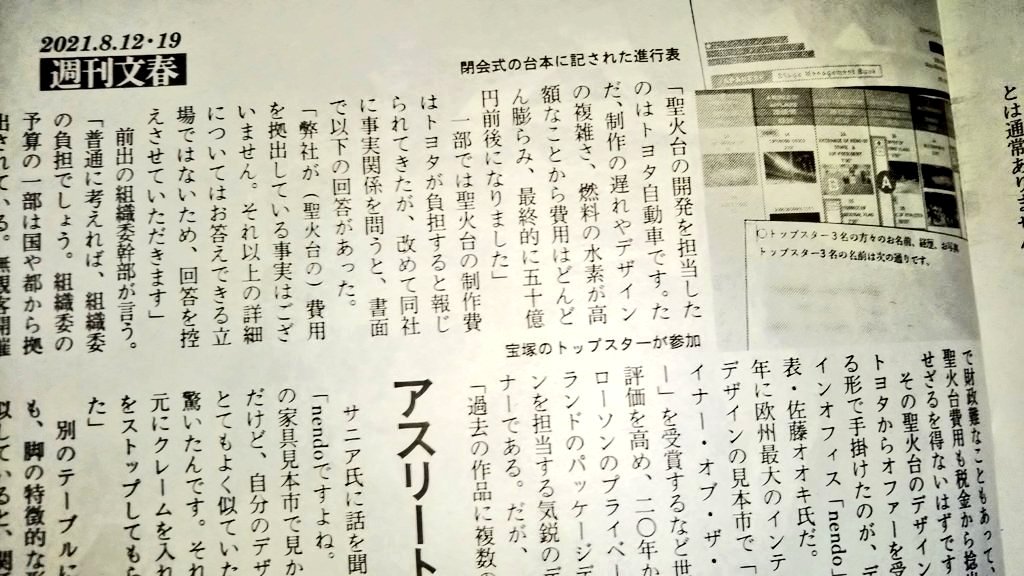 2021.8.12・19
週刊文春
閉会式の台本に記された進行表
「聖火台の開発を担当した
のはトヨタ自動車です。た
だ、制作の遅れやデザイン
の複雑さ、燃料の水素が高
額なことから費用はどんど
ん膨らみ、最終的に五十億
円前後になりました」
一部では聖火台の制作費
はトヨタが負担すると報じ
られてきたが、改めて同社
に事実関係を問うと、書面
で以下の回答があった。
「弊社が（聖火台の）費用
を拠出している事実はござ
いません。それ以上の詳細
についてはお答えできる立
場ではないため、回答を控
えさせていただきます」
前出の組織委幹部が言う。
「普通に考えれば、組織委
の負担でしょう。組織委の
予算の一部は国や都から拠
出されている。無観客開催
とは通常ありません
B
A
○トップスター3名の方々のお名前、経歴、お写真
トップスター3名の名前は次の通りです。
宝塚のトップスターが参加
で財政難なこともあって、
聖火台費用も税金から捻出
せざるを得ないはずです
その聖火台のデザイン
トヨタからオファーを受
る形で手掛けたのが、デ
インオフィス「nendo」
表・佐藤オオキ氏だ。
年に欧州最大のインテ
デザインの見本市で「
イナー・オブ・ザ・
ー」を受賞するなど世
評価を高め、二〇年か
ローソンのプライベー
ランドのパッケージデ
ンを担当する気鋭のデ
ナーである。だが、
「過去の作品に複数の
アスリート
サニア氏に話を聞
「nendoですよね。
の家具見本市で見か
だけど、自分のデザ
とてもよく似ていた
驚いたんです。それ
元にクレームを入れ
をストップしてもら
た」
別のテーブルに
も、脚の特徴的な形
似していると、関